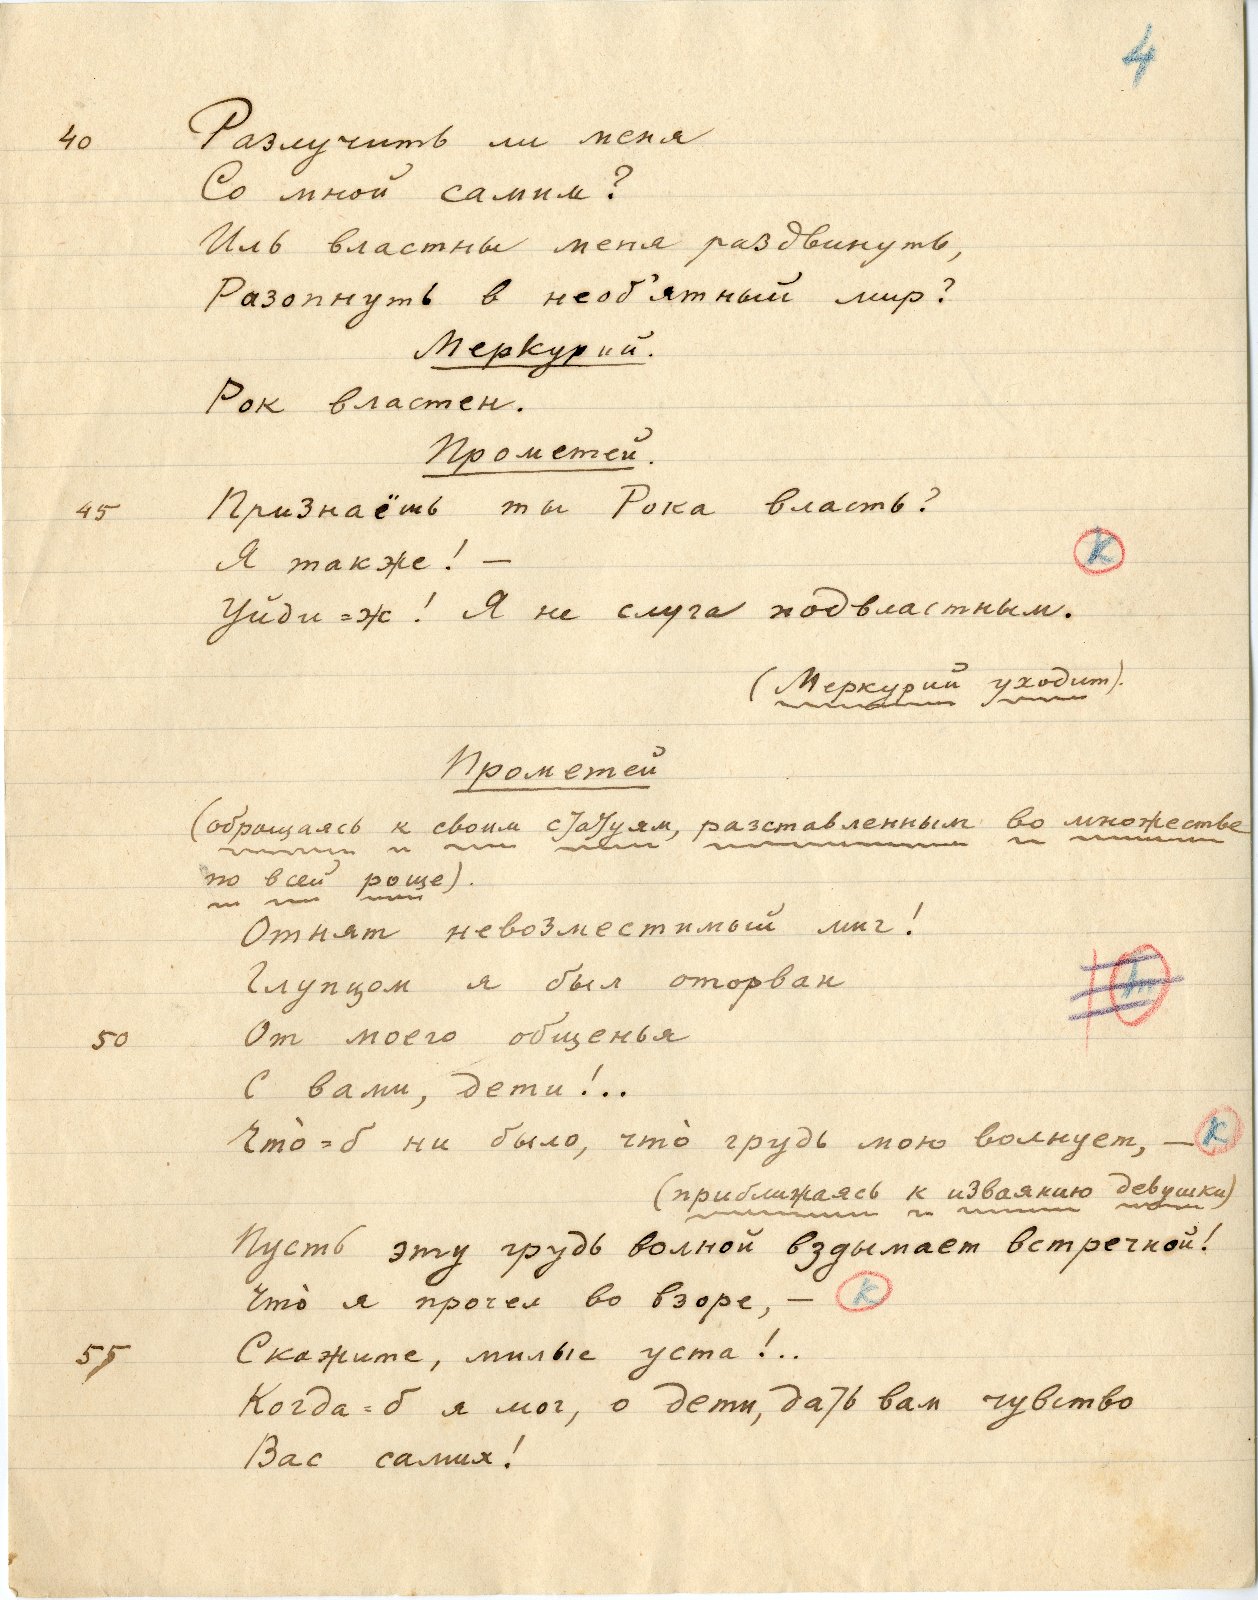 4
40 Разлучить ли меня
Со мной самим?
Иль властны меня раздвинуть,
Разопнуть в необ'ятный мир?
Меркурий.
Рок властен.
Прометей.
45 Признаёшь ты Рока власть?
Я также! —
К
Уйди=ж! Я не слуга подвластным.
(Меркурий уходит).
Прометей
(обращаясь к своим статуям, разставленным во множестве
по всей роще).
Отнят невозместимый миг!
Глупцом я был оторван
50 От моего общенья
С вами, дети!..
Что̀=б ни было, что̀ грудь мою волнует, — К
(приближаясь к изваянию девушки)
Пусть эту грудь волной вздымает встречной!
Что̀ я прочел во взоре, — К
55 Скажите, милые уста!..
Когда=б я мог, о дети, дать вам чувство
Вас самих!